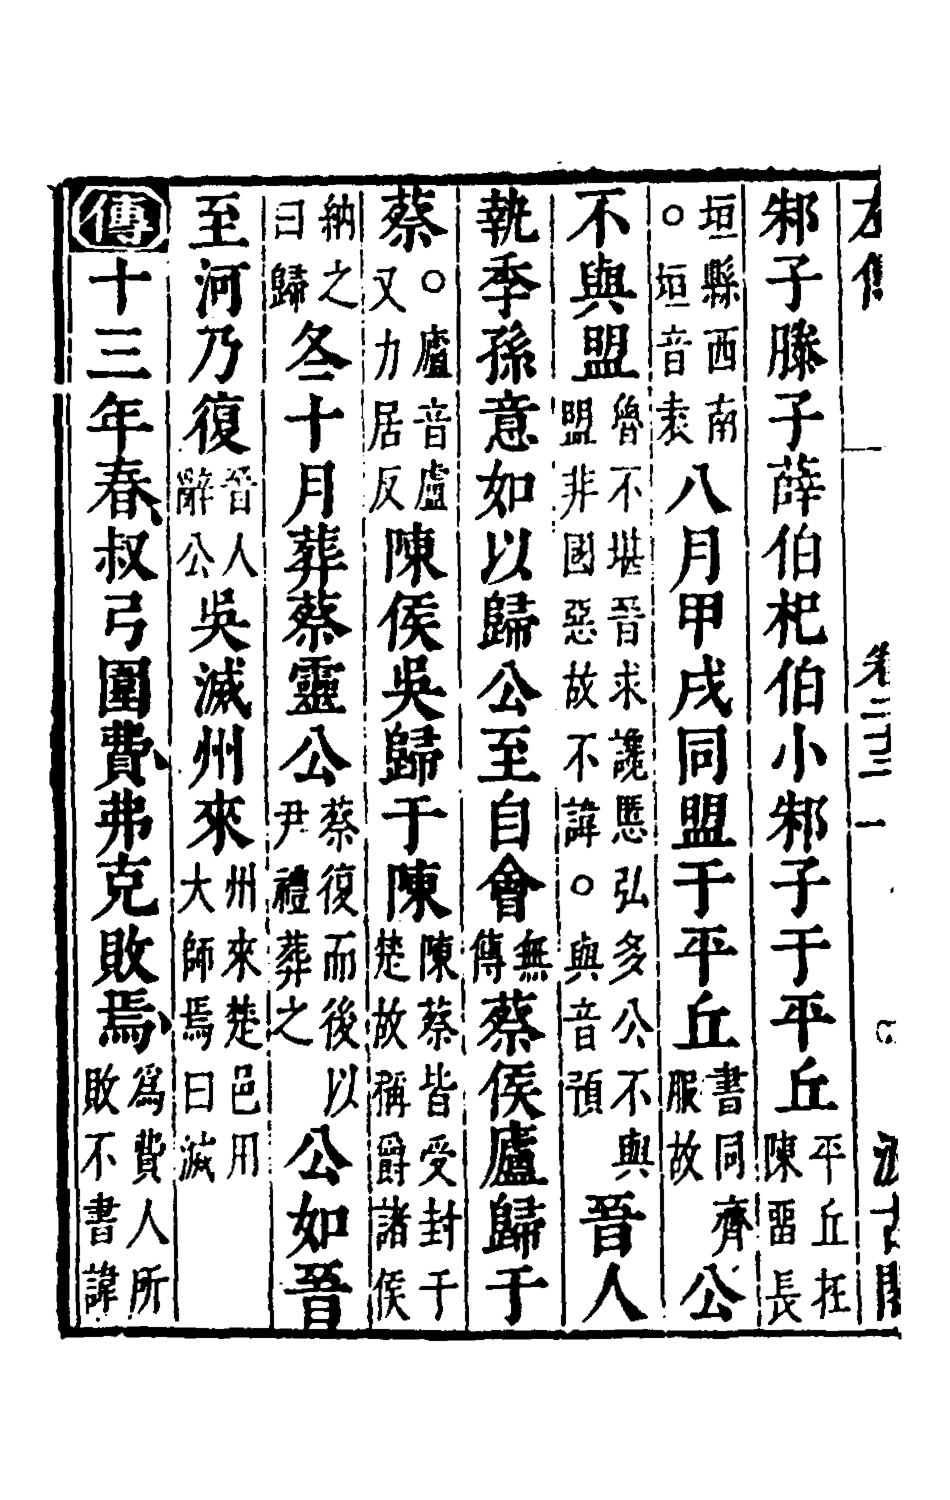 左傳 卷二十三 一 汲古閣
邾子滕子薛伯杞伯小邾子于平丘平丘在陳留長
垣縣西南○垣音袁八月甲戌同盟于平丘書同齊服故公
不與盟魯不堪晉求讒慝弘多公不與盟非國惡故不諱○與音預晉人
執季孫意如以歸公至自會無傳蔡侯廬歸于
蔡○廬音盧又力居反陳侯吳歸于陳陳蔡皆受封于楚故稱爵諸侯
納之曰歸冬十月葬蔡靈公蔡復而後以尹禮葬之公如晉
至河乃復晉人辭公吳滅州來州來楚邑用大師焉曰滅
傳十三年春叔弓圍費弗克敗焉爲費人所敗不書諱